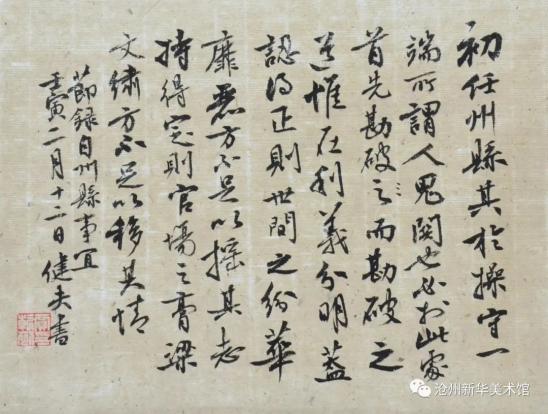 初任州縣其於操守一
端所謂人鬼関也必於此處
首先勘破之而勘破之
道惟在利義分明蓋
認得正則世間之紛華
靡麗方不足以搖其志
持得定則官場之膏粱
文繡方不足以移其情
節録自州縣事宜
壬寅二月十二日健夫書
沧州新华美术馆